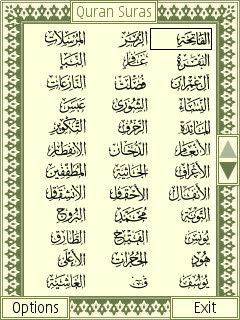 Quran Suras
الفاتحة الزمر المرسلات
البقرة غافر النبإ
آل عمران فصلت النازعات
النساء الشورى عبس
المائدة الزخرف التكوير
الأنعام الدخان الانفطار
الأعراف الجاثية المطففين
الأنفال الأحقاف الانشقاق
التوبة محمد البروج
يونس الفتح الطارق
هود الحجرات الأعلى
يوسف ق الغاشية
Options Exit